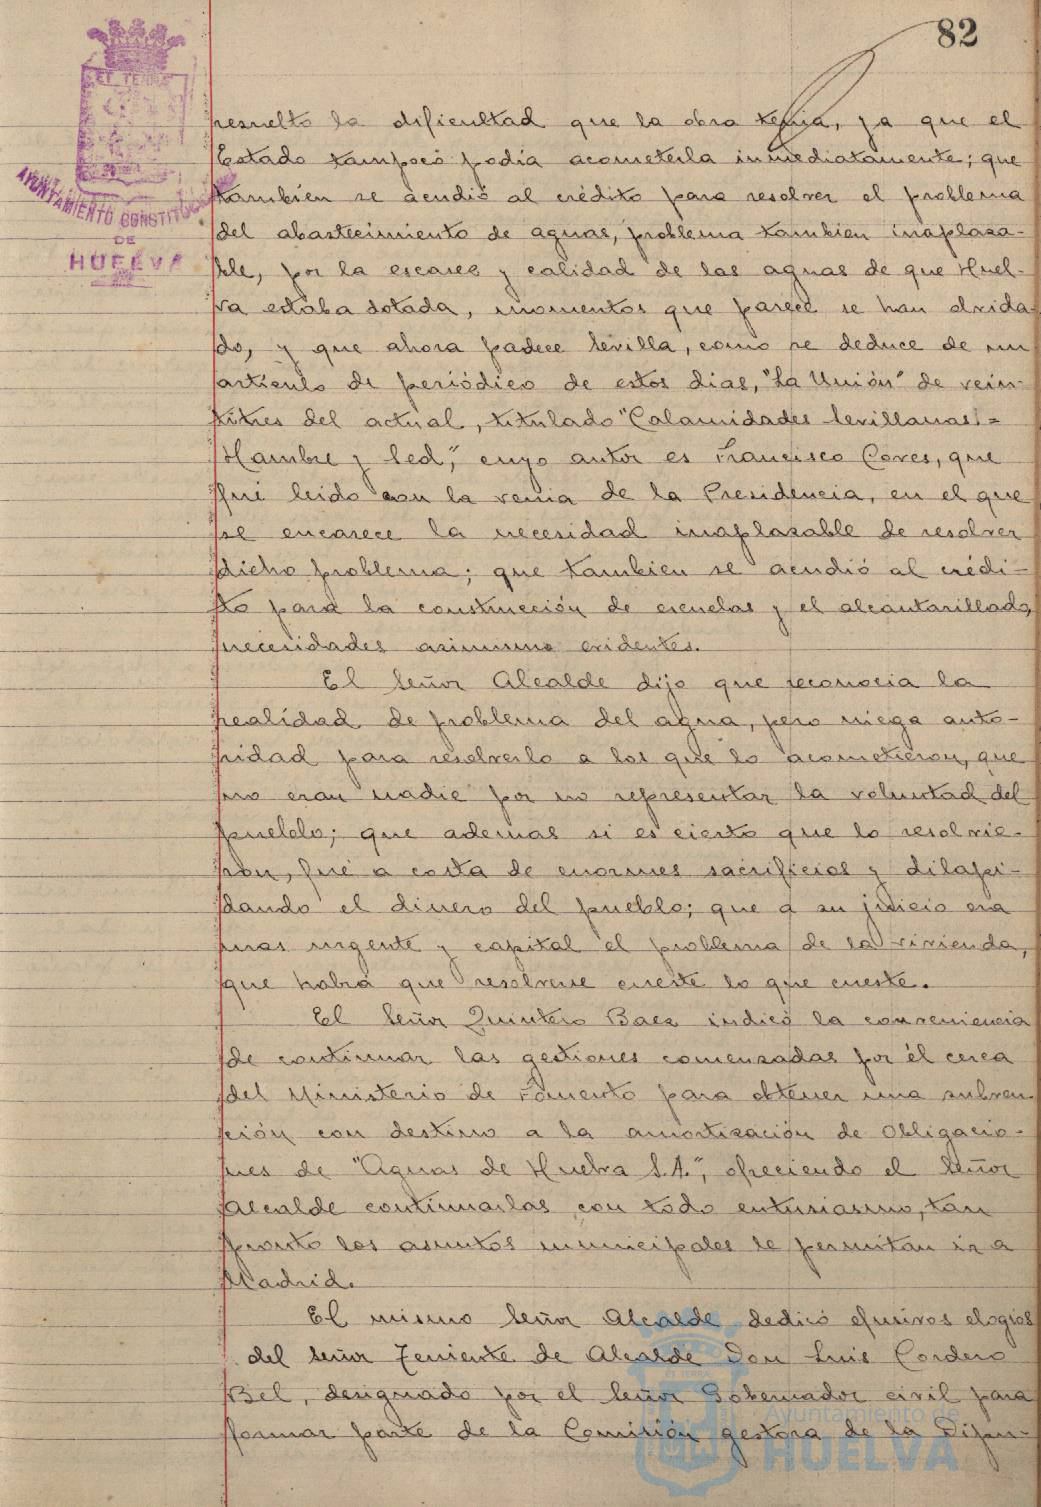 82
ET TERRÆ
AYUNTAMIENTO CONSTITUCIONAL
DE
HUELVA
resuelto la dificultad que la obra tenia, ya que el
Estado tampoco podia acometerla inmediatamente; que
tambien se acudió al crédito para resolver el problema
del abastecimiento de aguas, problema tambien inaplaza-
ble, por la escasez y calidad de las aguas de que Huel-
va estaba dotada, momentos que parece se han olvida-
do, y que ahora padece Sevilla, como se deduce de un
artículo de periódico de estos dias, "La Unión" de vein-
titres del actual, titulado "Calamidades Sevillanas:=
Hambre y Sed", cuyo autor es Francisco Coves, que
fué leido con la venia de la Presidencia, en el que
se encarece la necesidad inaplazable de resolver
dicho problema; que tambien se acudió al crédi-
to para la construcción de escuelas y el alcantarillado,
necesidades asimismo evidentes.
El Señor Alcalde dijo que reconocia la
realidad de problema del agua, pero niega auto-
ridad para resolverlo a los que lo acometieron, que
no eran nadie por no representar la voluntad del
pueblo; que ademas si es cierto que lo resolvie-
ron, fué a costa de enormes sacrificios y dilapi-
dando el dinero del pueblo; que a su juicio era
mas urgente y capital el problema de la vivienda,
que habrá que resolverse cueste lo que cueste.
El Señor Quintero Baez indicó la conveniencia
de continuar las gestiones comenzadas por él cerca
del Ministerio de Fomento para obtener una subven-
ción con destino a la amortización de Obligacio-
nes de "Aguas de Huelva S.A.", ofreciendo el Señor
Alcalde continuarlas con todo entusiasmo, tan
pronto los asuntos municipales le permitan ir a
Madrid.
El mismo Señor Alcalde dedicó efusivos elogios
del Señor Teniente de Alcalde Don Luis Cordero
Bel, designado por el Señor Gobernador civil para
formar parte de la Comisión gestora de la Dipu-
Ayuntamiento de
HUELVA